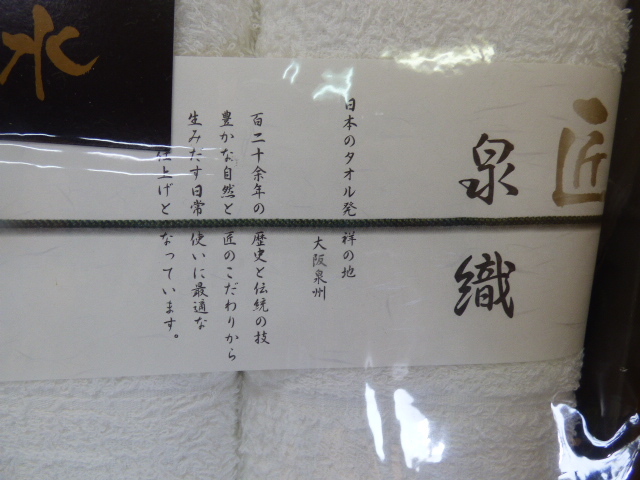 匠
泉織
日本のタオル発祥の地
大阪泉州
百二十余年の歴史と伝統の技
豊かな自然と匠のこだわりから
生みたす日常使いに最適な
仕上げとなっています。
水